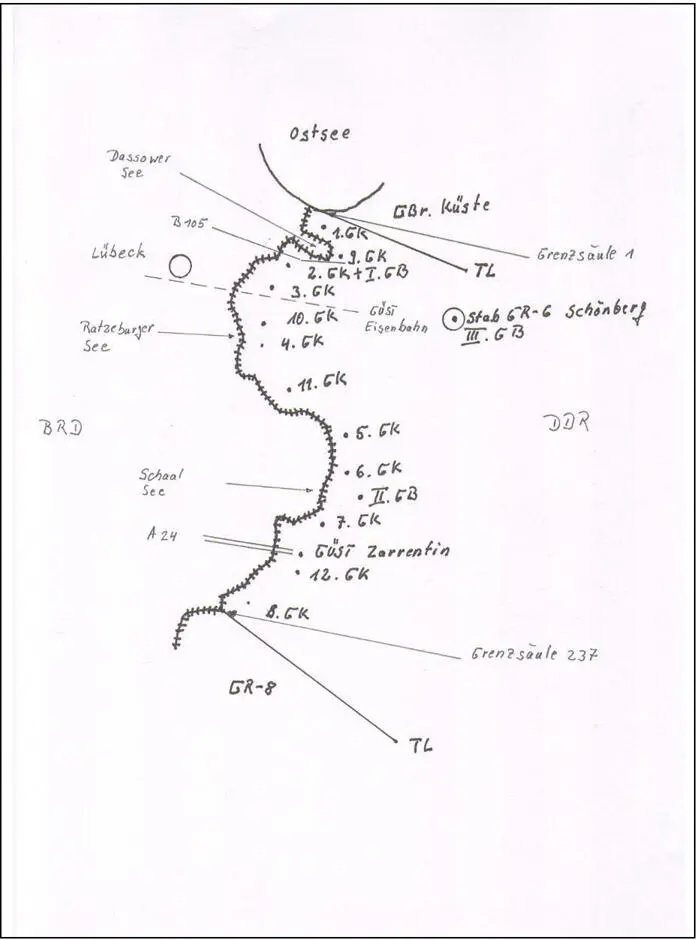 Ostsee
Dassower
See
GBr. Küste
B 105
1. GK
Grenzsäule 1
Lübeck
9. GK
TL
2. GK + I. GB
3. GK
GÜST
Eisenbahn
Stab GR-6 Schönberg
III. GB
10. GK
Ratzeburger
See
4. GK
11. GK
BRD
DDR
5. GK
Schaal
See
6. GK
II. GB
7. GK
A 24
GÜST Zarrentin
12. GK
8. GK
Grenzsäule 237
GR-8
TL